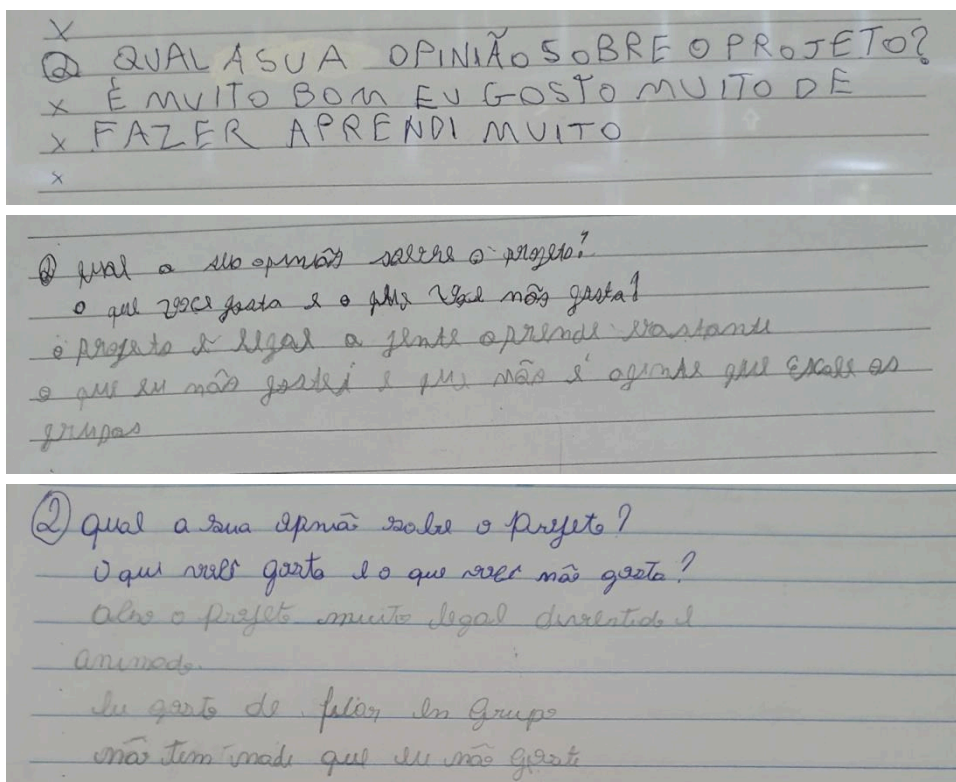 X
② QUAL A SUA OPINIÃO SOBRE O PROJETO?
X É MUITO BOM EU GOSTO MUITO DE
X FAZER APRENDI MUITO
X
② qual a sua opinão sobre o projeto?
o que voce gosta e o que você não gosta?
o projeto é legal a gente aprende bastante
o que eu não gostei é que não é agente que escole os
grupos
② qual a sua opinão sobre o projeto?
O que você gosta e o que você não gosta?
Acho o projeto muito legal divertido e
animado.
Eu gosto de ficar em grupo
não tem nada que eu não goste